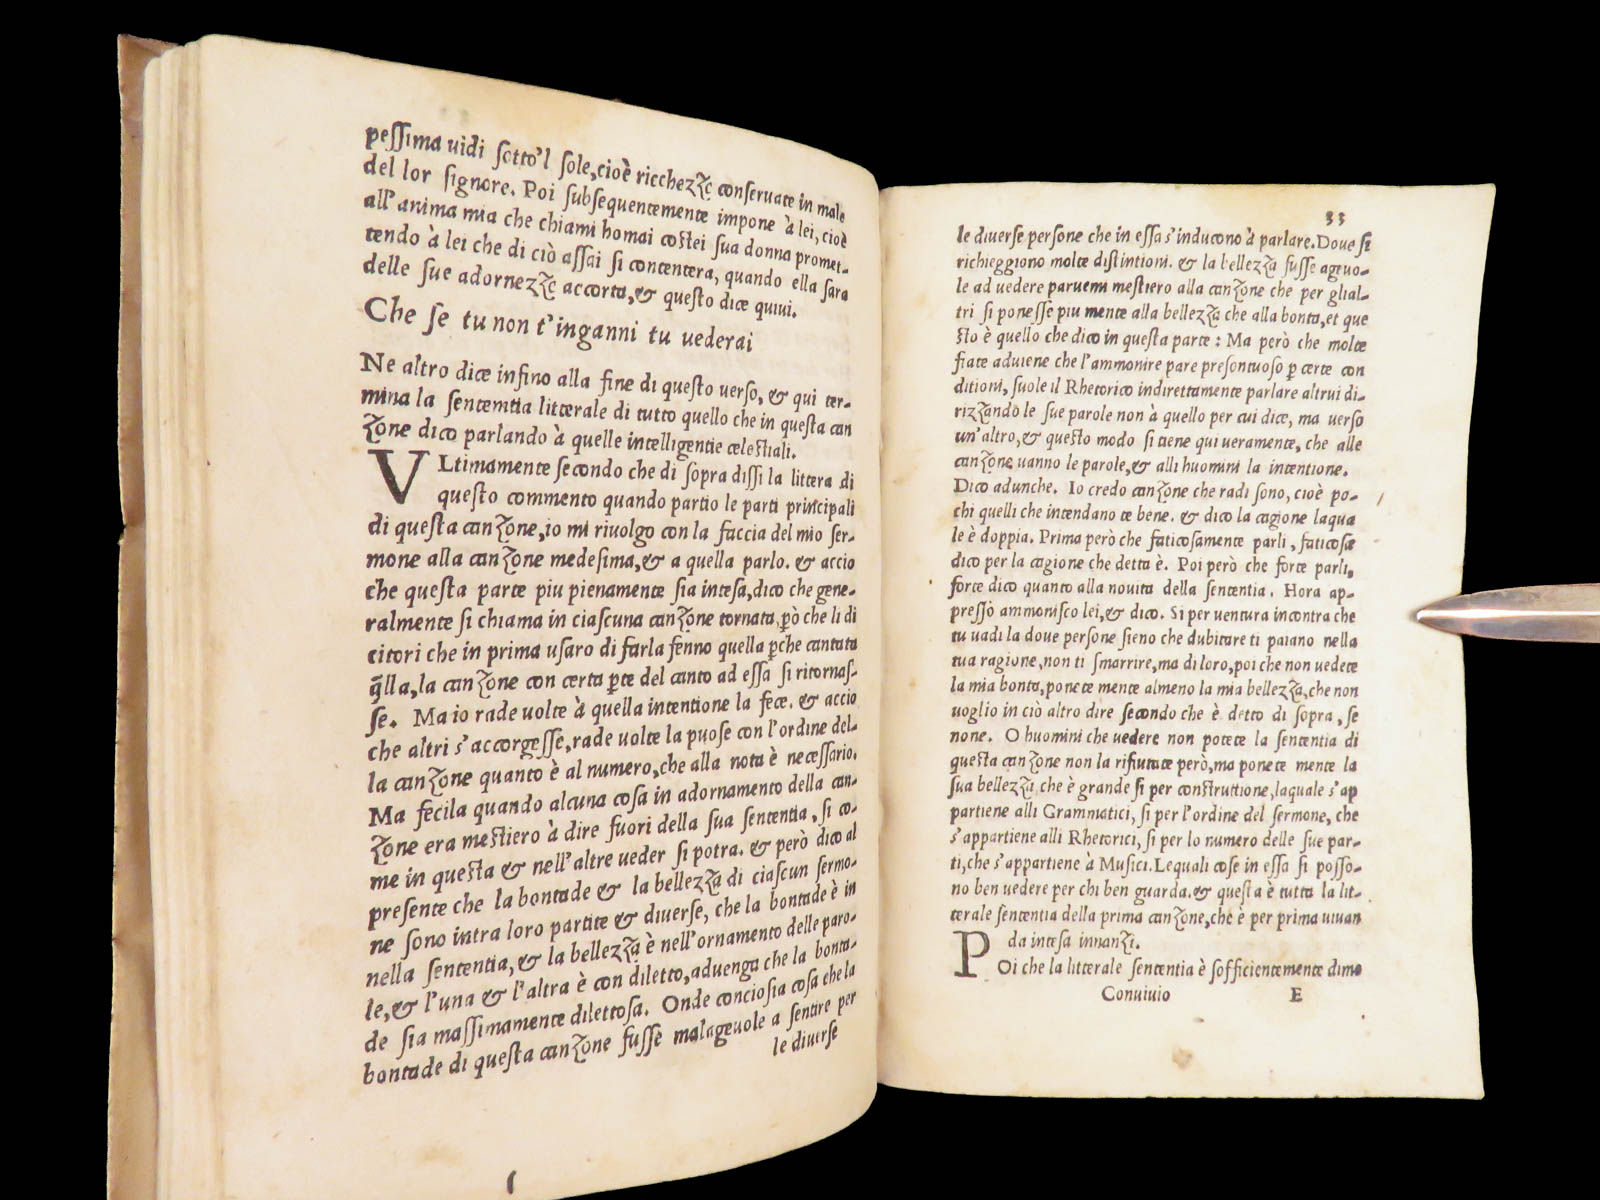 pessima uidi sotto'l sole, cioè ricchezze conseruate in male
del lor signore. Poi subsequentemente impone à lei, cioè
all'anima mia che chiami homai costei sua donna promet-
tendo à lei che di ciò assai si contentera, quando ella sara
delle sue adornezze accorta, & questo dice quiui.
Che se tu non t'inganni tu uederai
Ne altro dice infino alla fine di questo uerso, & qui ter-
mina la sentemtia litterale di tutto quello che in questa can
zone dico parlando à quelle intelligentie celestiali.
VLtimamente secondo che di sopra dissi la littera di
questo commento quando partio le parti principali
di questa canzone, io mi riuolgo con la faccia del mio ser-
mone alla canzone medesima, & a quella parlo. & accio
che questa parte piu pienamente sia intesa, dico che gene-
ralmente si chiama in ciascuna canzone tornata, ꝑò che li di
citori che in prima usaro di farla fenno quella ꝑche cantata
q̃lla, la canzone con certa ꝑte del canto ad essa si ritornas-
se. Ma io rade uolte à quella intentione la fece. & accio
che altri s'accorgesse, rade uolte la puose con l'ordine del-
la canzone quanto è al numero, che alla nota è necessario.
Ma fecila quando alcuna cosa in adornamento della can-
zone era mestiero à dire fuori della sua sententia, si co-
me in questa & nell'altre ueder si potra. & però dico al
presente che la bontade & la bellezza di ciascun sermo-
ne sono intra loro partite & diuerse, che la bontade è in
nella sententia, & la bellezza è nell'ornamento delle paro-
le, & l'una & l'altra è con diletto, aduenga che la bonta-
de sia massimamente dilettosa. Onde conciosia cosa che la
bontade di questa canzone fusse malageuole a sentire per
le diuerse
33
le diuerse persone che in essa s'inducono à parlare. Doue si
richieggiono molte distintioni. & la bellezza fusse ageuo-
le ad uedere paruemi mestiero alla canzone che per glial-
tri si ponesse piu mente alla bellezza che alla bonta, et que
sto è quello che dico in questa parte : Ma però che molte
fiate aduiene che l'ammonire pare presontuoso ꝑ certe con
ditioni, suole il Rhetorico indirettamente parlare altrui di-
rizzando le sue parole non à quello per cui dice, ma uerso
un'altro, & questo modo si tiene qui ueramente, che alle
canzone uanno le parole, & alli huomini la intentione.
Dico adunche. Io credo canzone che radi sono, cioè po-
chi quelli che intendano te bene. & dico la cagione laqua
le è doppia. Prima però che faticosamente parli, faticosa
dico per la cagione che detta è. Poi però che forte parli,
forte dico quanto alla nouita della sententia. Hora ap-
pressò ammonisco lei, & dico. Si per uentura incontra che
tu uadi la doue persone sieno che dubitare ti paiano nella
tua ragione, non ti smarrire, ma di loro, poi che non uedete
la mia bonta, ponete mente almeno la mia bellezza, che non
uoglio in ciò altro dire secondo che è detto di sopra, se
none. O huomini che uedere non potete la sententia di
questa canzone non la rifiutate però, ma ponete mente la
sua bellezza, che è grande si per construttione, laquale s'ap
partiene alli Grammatici, si per l'ordine del sermone, che
s'appartiene alli Rhetorici, si per lo numero delle sue par-
ti, che s'appartiene à Musici. Lequali cose in essa si posso-
no ben uedere per chi ben guarda. & questa è tutta la lit-
terale sententia della prima canzone, che è per prima uiuan
da intesa innanzi.
POi che la litterale sententia è sofficientemente dimo
Conuiuio E